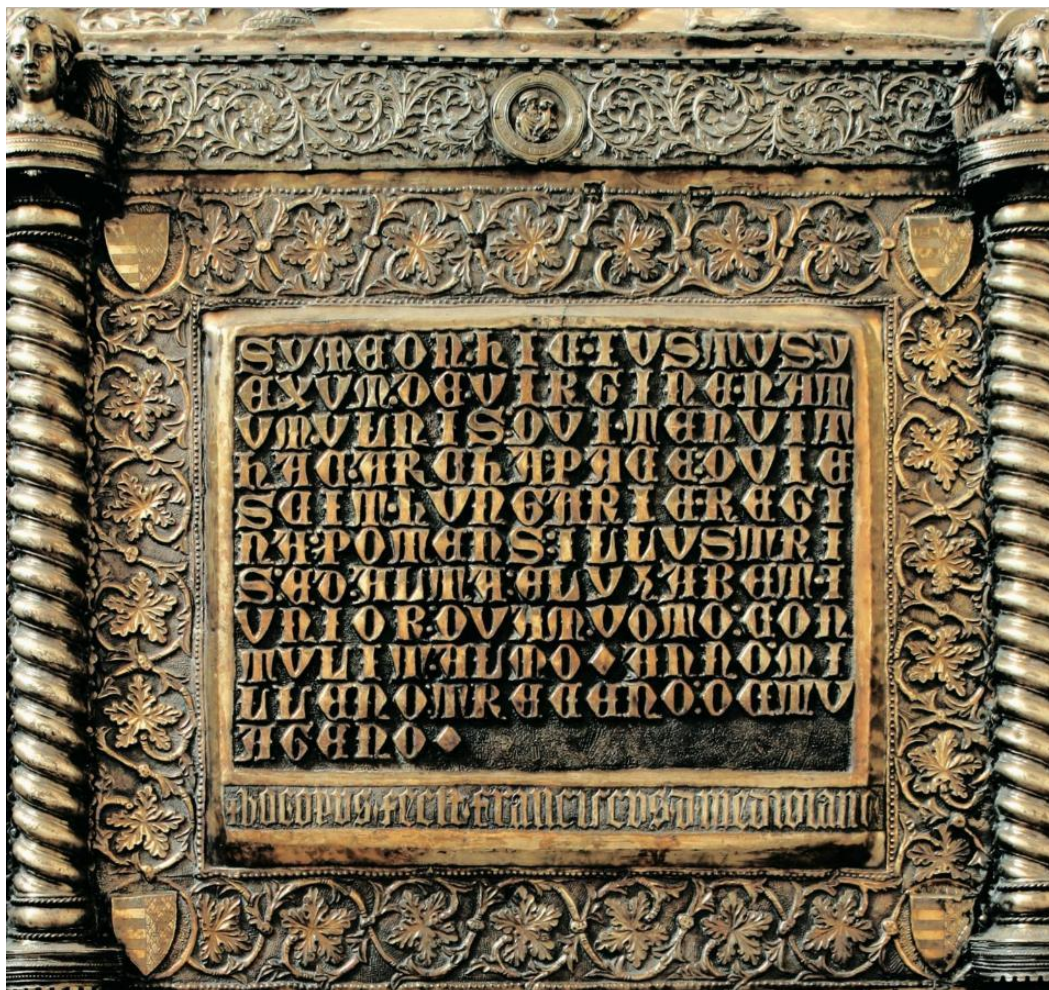 SYMEON·HIC·IVSTVS·Y
EXVM·DE VIRGINE·NAT
VM·VLNIS·QVI·TENVIT
HAC·ARCHA·PACE·QVIE
SCIT·HVNGARIE·REGI
NA·POTENS·ILLVSTRI
S·ED·ALTA·ELYZABET·I
VNIOR·QVAM·VOTO·CON
TVLIT·ALMO◆ANNO·MI
LLENO·TRECENO·OCTV
AGENO◆
+hoc opus fecit franciscus d mediolano